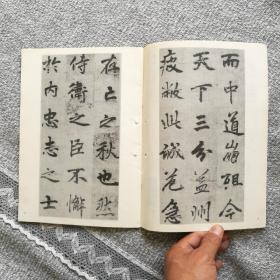 而中道崩殂今
天下三分益州
疲敝此誠危急
存亡之秋也然
侍衛之臣不懈
於內忠志之士